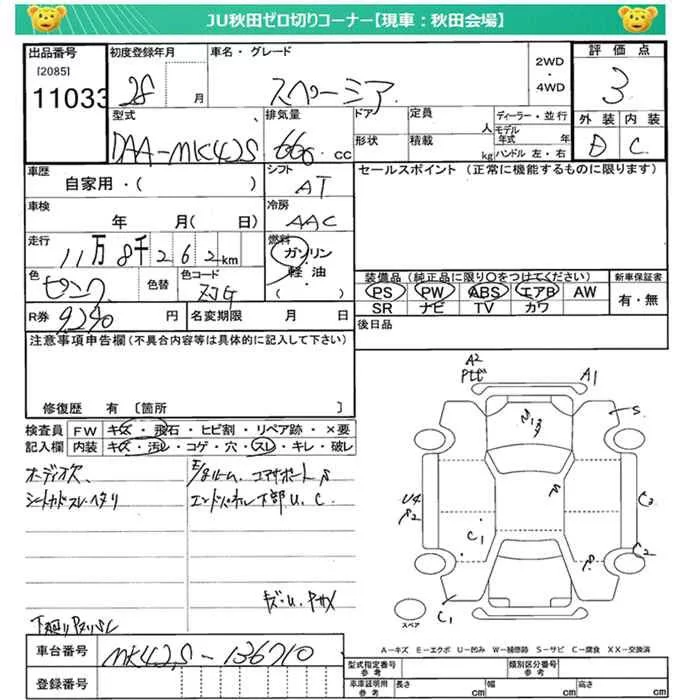 JU秋田ゼロ切りコーナー【現車：秋田会場】
出品番号 初度登録年月 車名・グレード 2WD・4WD 評価点
[2085]
11033 28 月 スペーシア 3
型式 排気量 ドア 定員 人 ディーラー・並行 外装 内装
DAA-MK42S 660 cc 形状 積載 kg モデル年式 年 ハンドル 左・右 D C
車歴 シフト セールスポイント（正常に機能するものに限ります）
自家用・( ) AT
車検 冷房
年 月( 日) AAC
走行 燃料
11万8千262km ガソリン
軽油
( )
色 色替 色コード
ピンク
装備品（純正品に限り○をつけてください） 新車保証書
PS PW ABS エアB AW 有・無
SR ナビ TV カワ
R券 9,290 円 名変期限 月 日 後日品
注意事項申告欄（不具合内容等は具体的に記入して下さい）
修復歴 有 〔箇所 〕
検査員 FW キズ・飛石・ヒビ割・リペア跡・×要
記入欄 内装 キズ・汚レ・コゲ・穴・スレ・キレ・破レ
オーディオ欠、
エンドパネル下部U、C
A2
A1
S
U4
S2
C3
C1
C2
S
C1
スペア
A－キズ E－エクボ U－凹み W－補修跡 S－サビ C－腐食 XX－交換済
車台番号 MK42S-136710
登録番号
型式指定番号 参考 類別区分番号 参考
車庫証明用 参考 長さ cm 幅 cm 高さ cm